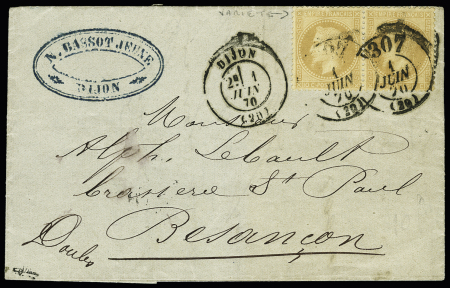 VARIETE
N. BASSOT JEUNE
DIJON
DIJON
2E 1
JUIN
70
(20)
1307
1
JUIN
70
(20)
1
JUIN
70
(20)
Monsieur
Alph. Lebault
brasserie St Paul
Besançon
Doubs